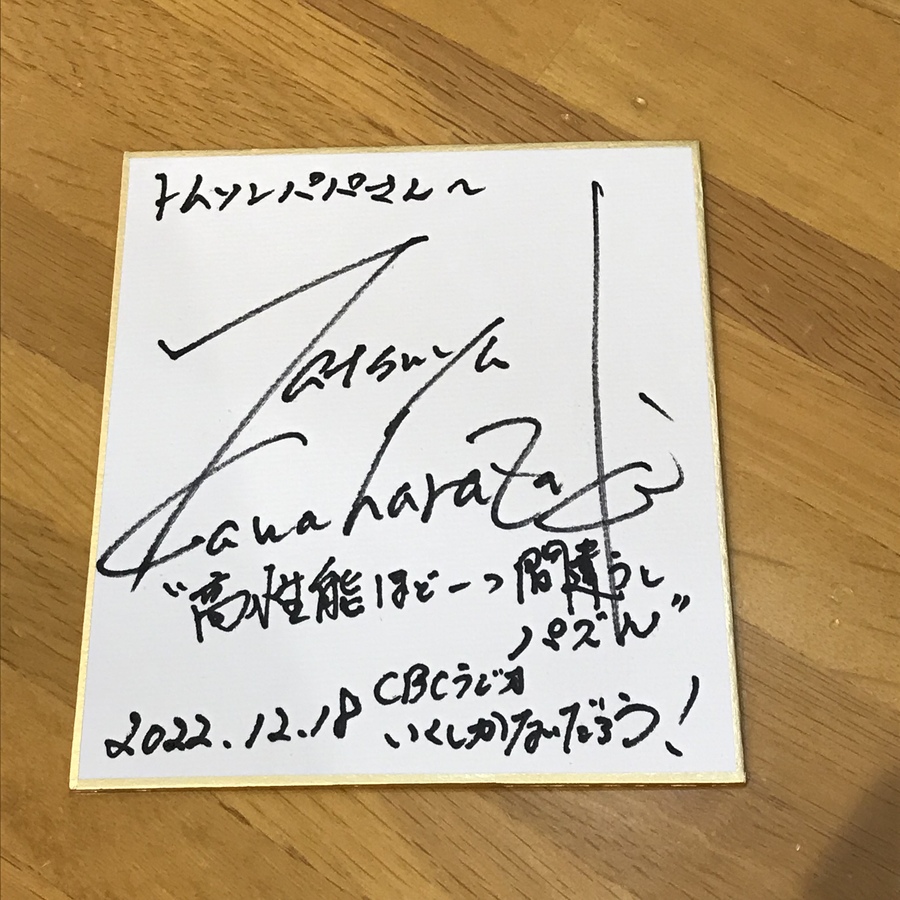 トムソンパパさんへ
Tatsuya
Kawaharazaki
“高性能ほど一つ間違うと
パズん”
2022.12.18 CBCラジオ
いくしかないだろう!